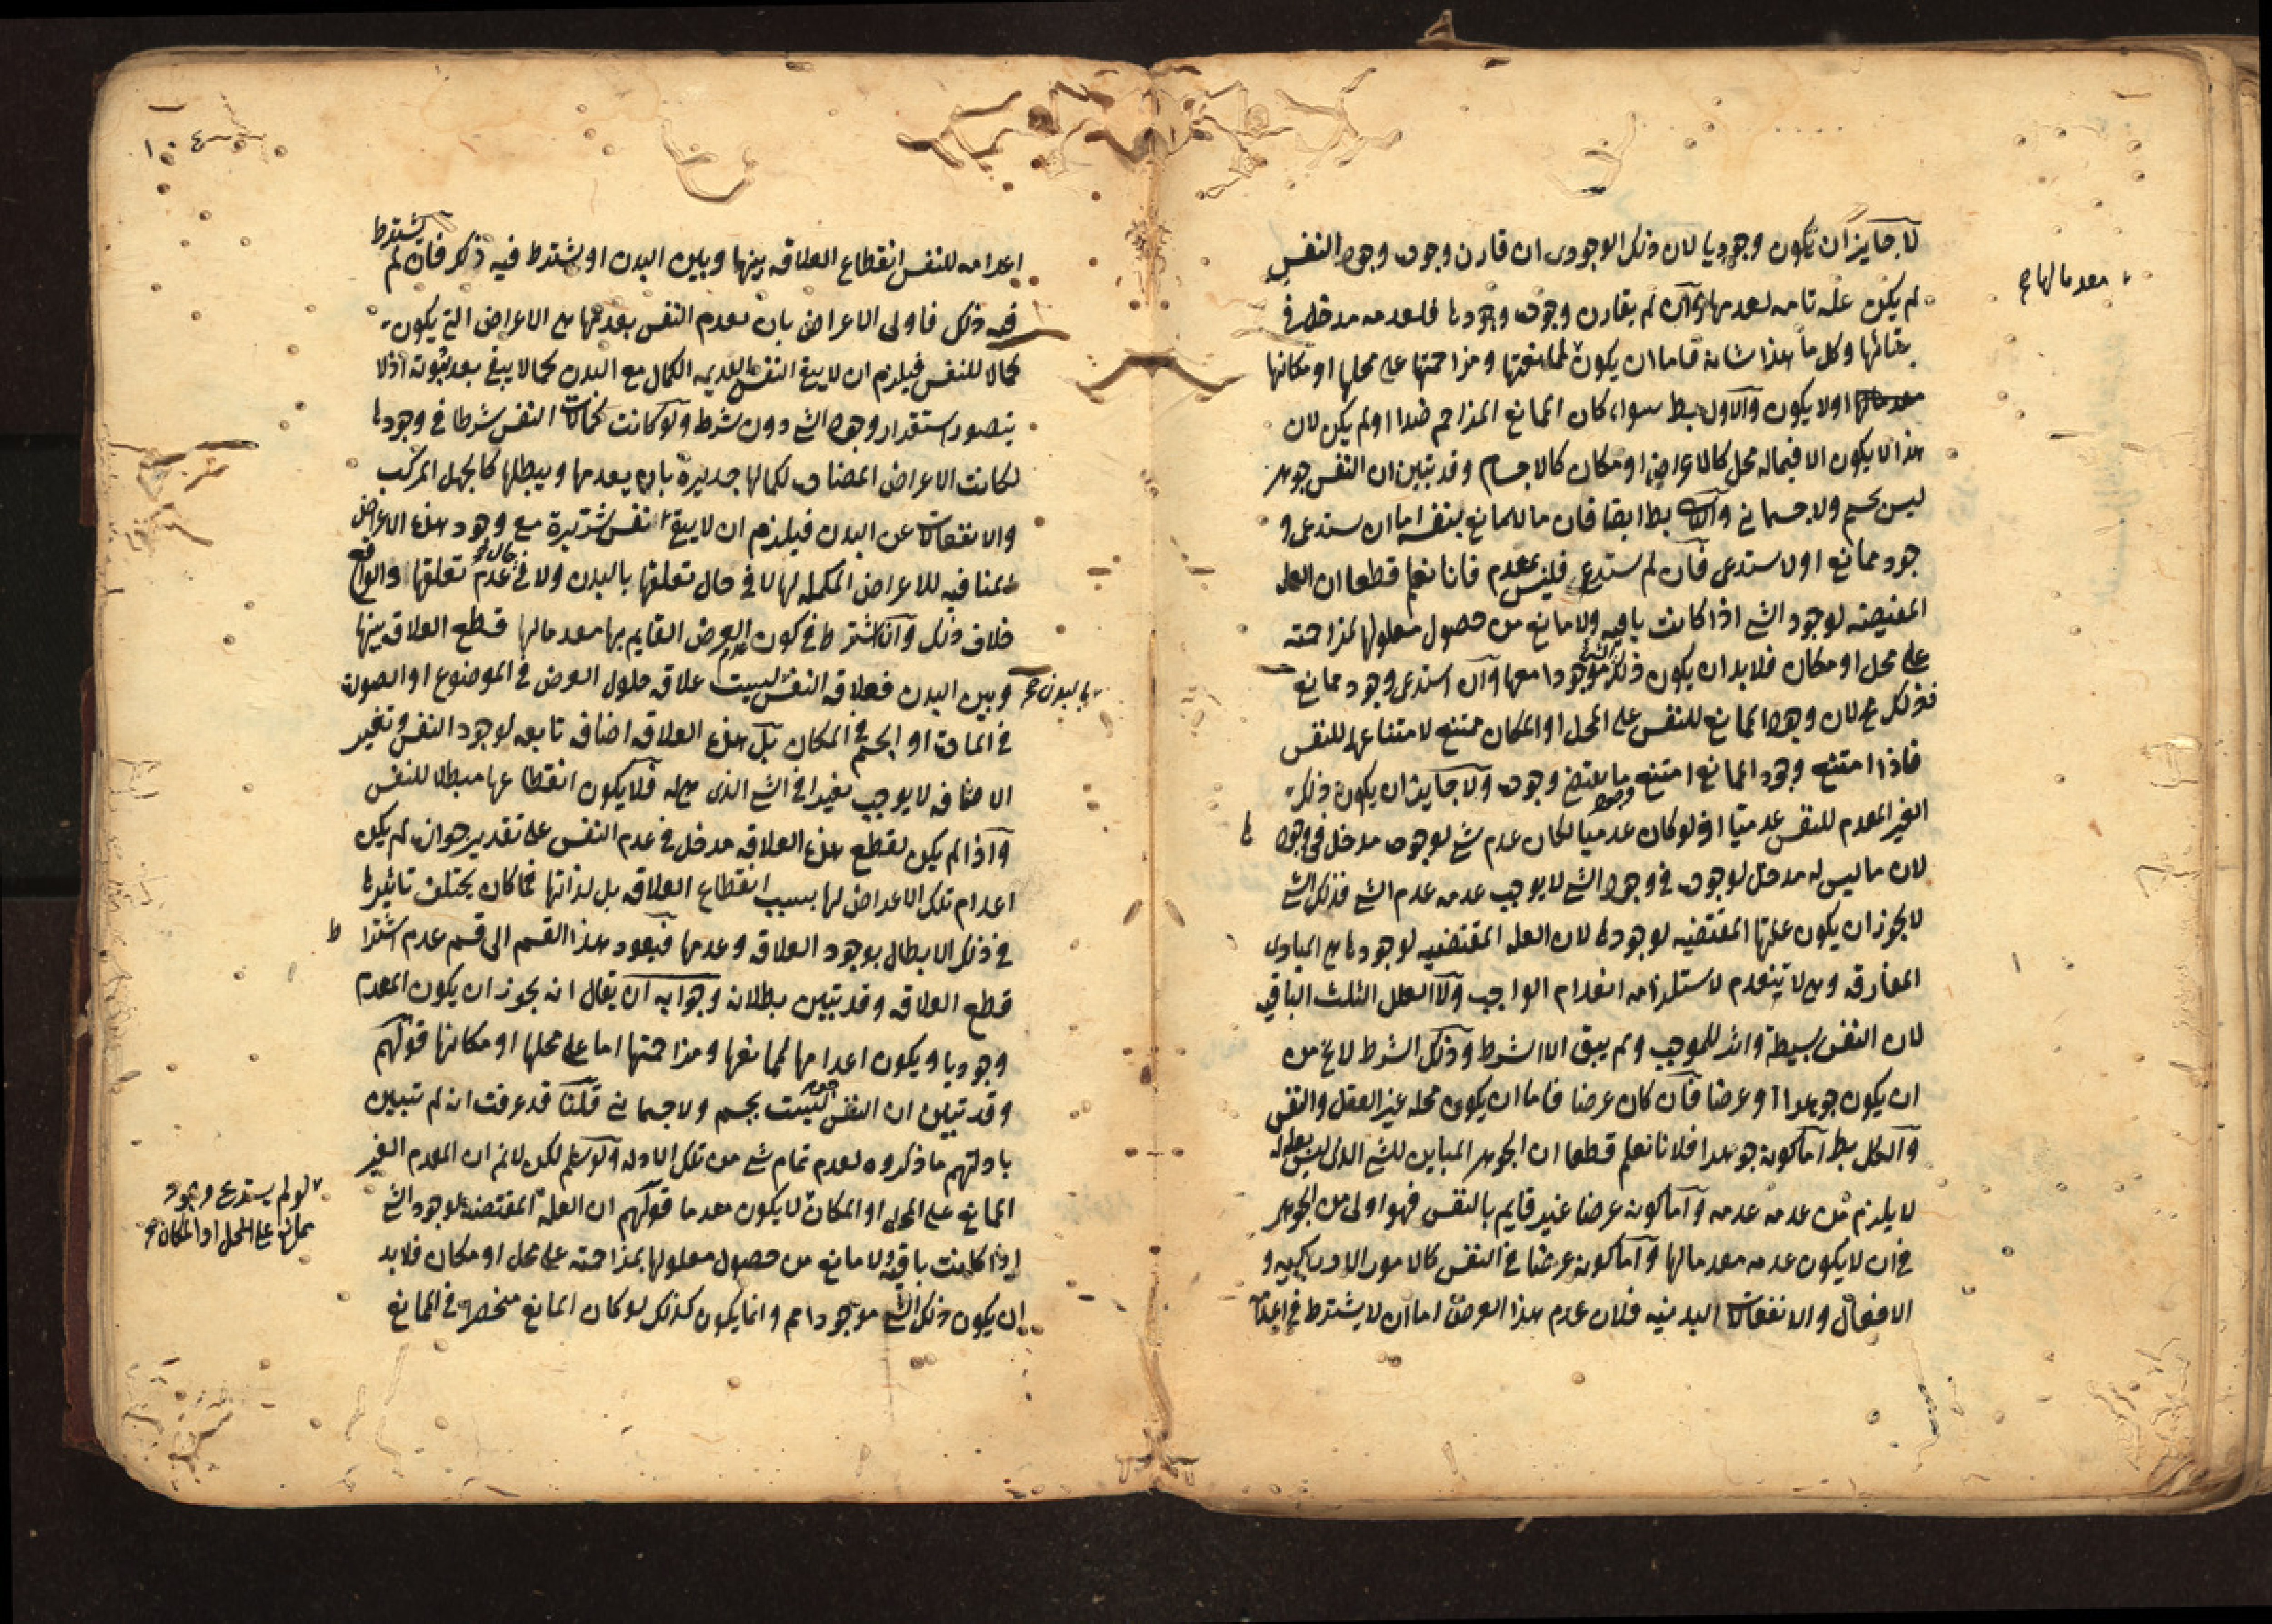 لا جايز ان يكون وجوديا لان ذلك الوجودى ان قارن وجوده وجود النفس
لم يكن علة تامه لعدمها وان لم يقارن وجوده وجودها فلعدمه مدخل في
بقائها وكل ما هذا شانه فاما ان يكون لممانعتها ومزاحمتها على محلها او مكانها
معدما لها
اولا يكون والاول بط سواء كان المانع المزاحم ضدا او لم يكن لان
هذا لا يكون الا فيما له محل كالاعراض او مكان كالاجسام وقد تبين ان النفس جوهر
ليس بجسم ولا جسماني والثاني بط ايضا فان ما لا يمانع بنفسه اما ان يستدعى و
جود ممانع اولا يستدعى فان لم يستدع فليس بمعدم فانا نعلم قطعا ان العله
المقتضيه لوجود الشي اذا كانت باقيه ولا مانع من حصول معلولها بمزاحمته
على محل او مكان فلا بد ان يكون ذلك الشي موجودا معها وان استدعى وجود ممانع
فذلك مح لان وجود الممانع للنفس على المحل او المكان ممتنع لامتناعهما للنفس
فاذا امتنع وجود الممانع امتنع ما يقتضي وجوده ولا جايز ان يكون ذلك
الغير المعدم للنفس عدميا اذ لو كان عدميا لكان عدم شي لوجوده مدخل في وجودها
لان ما ليس له مدخل لوجوده في وجود الشي لا يوجب عدمه عدم الشي فذلك الشي
لا يجوز ان يكون علتها المقتضيه لوجودها لان العله المقتضيه لوجودها هي المبادى
المفارقه وهي لا ينعدم لاستلزامه انعدام الواجب ولا العلل الثلث الباقيه
لان النفس بسيطة واثر للموجب ولم يبق الا الشرط وذلك الشرط لا يخ من
ان يكون جوهرا او عرضا فان كان عرضا فاما ان يكون محله غير العقل والنفس
والكل بط اما كونه جوهرا فلانا نعلم قطعا ان الجوهر المباين للشي الذى ليس بعلة له
لا يلزم من عدمه عدمه واما كونه عرضا غير قايم بالنفس فهو اولى من الجوهر
في ان لا يكون عدمه معدما لها واما كونه عرضا في النفس كالامور الادراكيه و
الافعال والانفعالات البدنيه فلان عدم هذا العرض اما ان لا يشترط في اعدا
اعدامه للنفس انقطاع العلاقه بينها وبين البدن او يشترط فيه ذلك فان لم يشترط
فيه ذلك فاولى الاعراض بان تعدم النفس بعدمها هي الاعراض التي يكون
كمالا للنفس فيلزم ان لا يبقى النفس العديمه الكمال مع البدن كما لا يبقى بعد ثبوته اذ لا
يتصور استقرار وجود الشي دون شرط ولو كانت كمالات النفس شرطا في وجودها
لكانت الاعراض المضاده لكمالها جديرة بان يعدمها ويبطلها كالجهل المركب
والانفعالات عن البدن فيلزم ان لا يبقى نفس شريرة مع وجود هذه الاعراض
المنافيه للاعراض المكمله لها لا في حال تعلقها بالبدن ولا في حالة عدم تعلقها والواقع
خلاف ذلك وان اشترط في كون عدم العرض القايم بها معدما لها قطع العلاقه بينها
وبين البدن فعلاقه النفس بالبدن ليست علاقه حلول العرض في الموضوع او الصوره
في الماده او الجسم في المكان بل هذه العلاقه اضافه تابعه لوجود النفس وتغير
الاضافه لا يوجب تغيرا في الشي الذى هي له فلا يكون انقطاعها مبطلا للنفس
واذا لم يكن لقطع هذه العلاقه مدخل في عدم النفس على تقدير جوازه لم يكن
اعدام تلك الاعراض لها بسبب انقطاع العلاقه بل لذاتها فما كان يختلف تاثيرها
في ذلك الابطال بوجود العلاقه وعدمها فيعود هذا القسم الى قسم عدم اشتراط
قطع العلاقه وقد تبين بطلانه وجوابه ان يقال انه يجوز ان يكون المعدم
وجوديا ويكون اعدامها لممانعها ومزاحمتها اما على محلها او مكانها قولهم
وقد تبين ان النفس جوهر ليست بجسم ولا جسماني قلنا قد عرفت انه لم تتبين
بادلتهم ما ذكروه لعدم تمام شي من تلك الادله ولو سلم لكن لا نم ان المعدم الغير
الممانع على المحل او المكان لو لم يستدع وجود ممانع على المحل او المكان لا يكون معدما قولهم ان العلة المقتضية لوجود الشي
اذا كانت باقية ولا مانع من حصول معلولها بمزاحمته على محل او مكان فلا بد
ان يكون ذلك الشي موجودا مم وانما يكون كذلك لو كان المانع منحصرا في الممانع